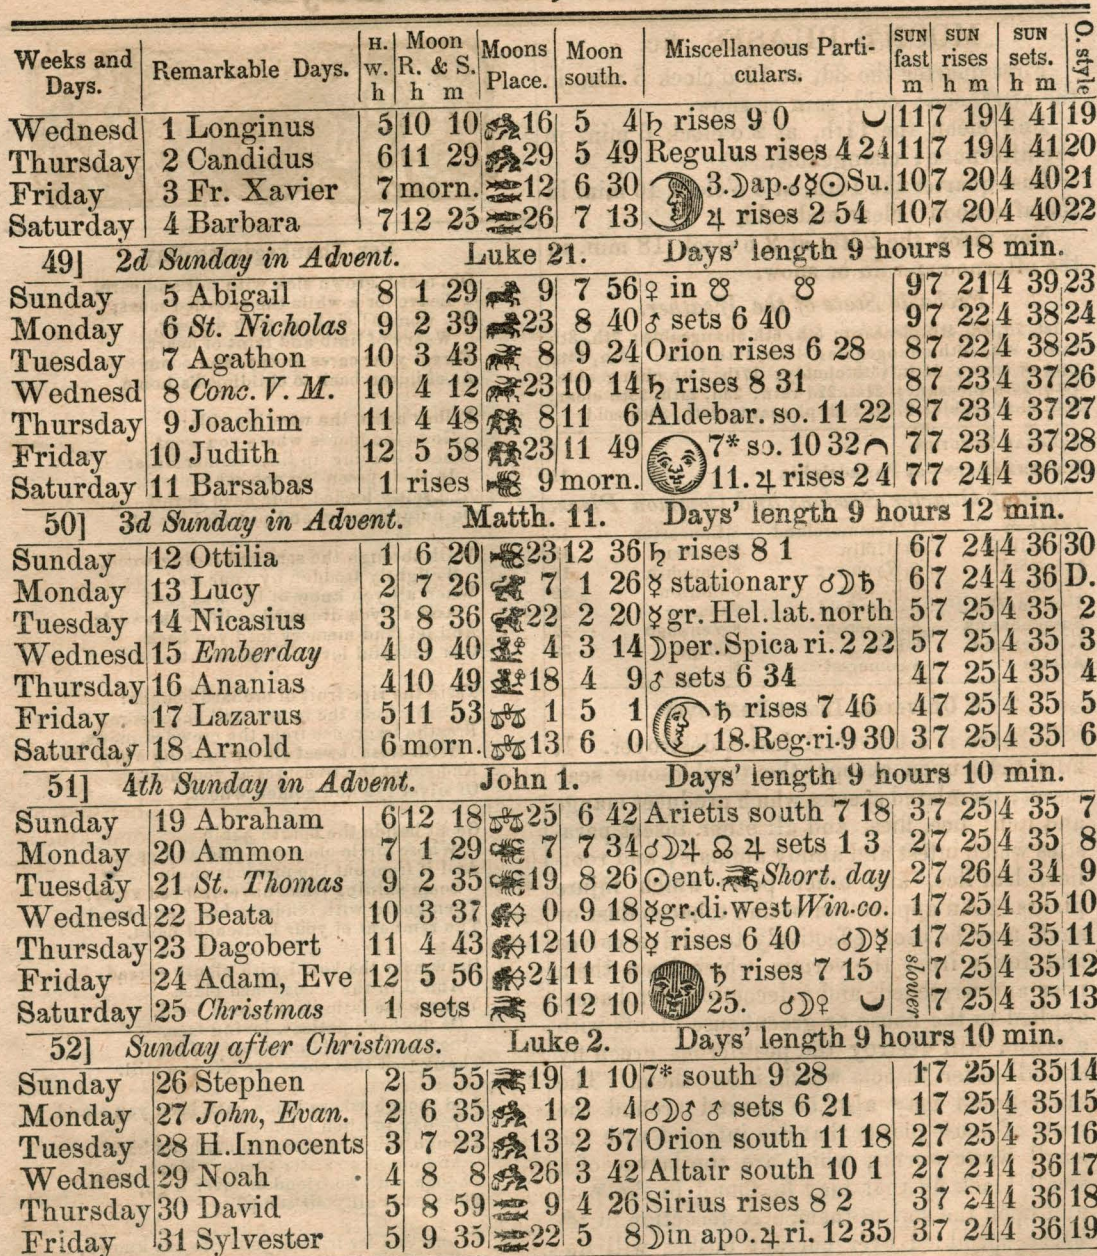 Weeks and Days. Remarkable Days. H. w. h Moon R. & S. h m Moons Place. Moon south. Miscellaneous Particulars. SUN fast m SUN rises h m SUN sets. h m O. style
Wednesd 1 Longinus 5 10 10 16 5 4 ♄ rises 9 0 11 7 19 4 41 19
Thursday 2 Candidus 6 11 29 29 5 49 Regulus rises 4 24 11 7 19 4 41 20
Friday 3 Fr. Xavier 7 morn. 12 6 30 3.☽ap.☌☿☉Su. 10 7 20 4 40 21
Saturday 4 Barbara 7 12 25 26 7 13 ♃ rises 2 54 10 7 20 4 40 22
49] 2d Sunday in Advent. Luke 21. Days' length 9 hours 18 min.
Sunday 5 Abigail 8 1 29 9 7 56 ♀ in ☋ ☋ 9 7 21 4 39 23
Monday 6 St. Nicholas 9 2 39 23 8 40 ♂ sets 6 40 9 7 22 4 38 24
Tuesday 7 Agathon 10 3 43 8 9 24 Orion rises 6 28 8 7 22 4 38 25
Wednesd 8 Conc. V. M. 10 4 12 23 10 14 ♄ rises 8 31 8 7 23 4 37 26
Thursday 9 Joachim 11 4 48 8 11 6 Aldebar. so. 11 22 8 7 23 4 37 27
Friday 10 Judith 12 5 58 23 11 49 7* so. 10 32 7 7 23 4 37 28
Saturday 11 Barsabas 1 rises 9 morn. 11. ♃ rises 2 4 7 7 24 4 36 29
50] 3d Sunday in Advent. Matth. 11. Days' length 9 hours 12 min.
Sunday 12 Ottilia 1 6 20 23 12 36 ♄ rises 8 1 6 7 24 4 36 30
Monday 13 Lucy 2 7 26 7 1 26 ☿ stationary ☌☽♄ 6 7 24 4 36 D.
Tuesday 14 Nicasius 3 8 36 22 2 20 ☿ gr. Hel. lat. north 5 7 25 4 35 2
Wednesd 15 Emberday 4 9 40 4 3 14 ☽per. Spica ri. 2 22 5 7 25 4 35 3
Thursday 16 Ananias 4 10 49 18 4 9 ♂ sets 6 34 4 7 25 4 35 4
Friday 17 Lazarus 5 11 53 1 5 1 ♄ rises 7 46 4 7 25 4 35 5
Saturday 18 Arnold 6 morn. 13 6 0 18. Reg. ri. 9 30 3 7 25 4 35 6
51] 4th Sunday in Advent. John 1. Days' length 9 hours 10 min.
Sunday 19 Abraham 6 12 18 25 6 42 Arietis south 7 18 3 7 25 4 35 7
Monday 20 Ammon 7 1 29 7 7 34 ☌☽♃ ☊ ♃ sets 1 3 2 7 25 4 35 8
Tuesday 21 St. Thomas 9 2 35 19 8 26 ☉ent. Short. day 2 7 26 4 34 9
Wednesd 22 Beata 10 3 37 0 9 18 ☿gr. di. west Win. co. 1 7 25 4 35 10
Thursday 23 Dagobert 11 4 43 12 10 18 ☿ rises 6 40 ☌☽☿ 1 7 25 4 35 11
Friday 24 Adam, Eve 12 5 56 24 11 16 ♄ rises 7 15 slower 7 25 4 35 12
Saturday 25 Christmas 1 sets 6 12 10 25. ☌☽♀ 7 25 4 35 13
52] Sunday after Christmas. Luke 2. Days' length 9 hours 10 min.
Sunday 26 Stephen 2 5 55 19 1 10 7* south 9 28 1 7 25 4 35 14
Monday 27 John, Evan. 2 6 35 1 2 4 ☌☽♂ ♂ sets 6 21 1 7 25 4 35 15
Tuesday 28 H. Innocents 3 7 23 13 2 57 Orion south 11 18 2 7 25 4 35 16
Wednesd 29 Noah 4 8 8 26 3 42 Altair south 10 1 2 7 24 4 36 17
Thursday 30 David 5 8 59 9 4 26 Sirius rises 8 2 3 7 24 4 36 18
Friday 31 Sylvester 5 9 35 22 5 8 ☽in apo. ♃ ri. 12 35 3 7 24 4 36 19